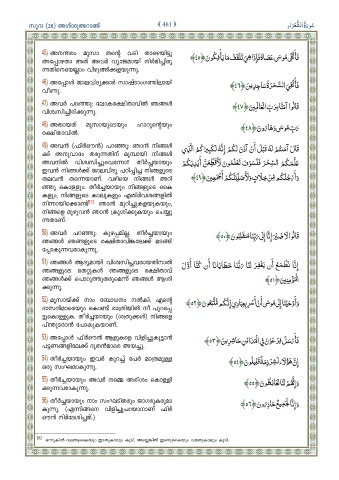 സൂറ: (26) അശ്ശുഅറാഅ്
﴾ 461 ﴿
سُورَةُ الشُّعَرَاءِ
45) അനന്തരം മൂസാ തന്റെ വടി താഴെയിട്ടു
അപ്പോഴതാ അത് അവര്‍ വ്യാജമായി നിര്‍മിച്ചിരു
ന്നതിനെയെല്ലാം വിഴുങ്ങിക്കളയുന്നു.
فَأَلْقَىٰ مُوسَىٰ عَصَاهُ فَإِذَا هِيَ تَلْقَفُ مَا يَأْفِكُونَ ﴿٤٥﴾
46) അപ്പോള്‍ ജാലവിദ്യക്കാര്‍ സാഷ്ടാംഗത്തിലായി
വീണു.
فَأُلْقِيَ السَّحَرَةُ سَاجِدِينَ ﴿٤٦﴾
47) അവര്‍ പറഞ്ഞു: ലോകരക്ഷിതാവില്‍ ഞങ്ങള്‍
വിശ്വസിച്ചിരിക്കുന്നു.
قَالُوا آمَنَّا بِرَبِّ الْعَالَمِينَ ﴿٤٧﴾
48) അതായത് മൂസായുടെയും ഹാറൂന്റെയും
രക്ഷിതാവില്‍.
رَبِّ مُوسَىٰ وَهَارُونَ ﴿٤٨﴾
49) അവന്‍ (ഫിര്‍ഔന്‍) പറഞ്ഞു: ഞാന്‍ നിങ്ങള്‍
ക്ക് അനുവാദം തരുന്നതിന് മുമ്പായി നിങ്ങള്‍
അവനില്‍ വിശ്വസിച്ചുവെന്നോ? തീര്‍ച്ചയായും
ഇവന്‍ നിങ്ങള്‍ക്ക് ജാലവിദ്യ പഠിപ്പിച്ച നിങ്ങളുടെ
തലവന്‍ തന്നെയാണ്. വഴിയെ നിങ്ങള്‍ അറി
ഞ്ഞു കൊള്ളും. തീര്‍ച്ചയായും നിങ്ങളുടെ കൈ
കളും, നിങ്ങളുടെ കാലുകളും എതിര്‍വശങ്ങളില്‍
നിന്നായിക്കൊണ്ട്[8] ഞാന്‍ മുറിച്ചുകളയുകയും,
നിങ്ങളെ മുഴുവന്‍ ഞാന്‍ ക്രൂശിക്കുകയും ചെയ്യു
ന്നതാണ്.
قَالَ آمَنتُمْ لَهُ قَبْلَ أَنْ آذَنَ لَكُمْ إِنَّهُ لَكَبِيرُكُمُ الَّذِي
عَلَّمَكُمُ السِّحْرَ فَلَسَوْفَ تَعْلَمُونَ لَأُقَطِّعَنَّ أَيْدِيَكُمْ
وَأَرْجُلَكُم مِّنْ خِلَافٍ وَلَأُصَلِّبَنَّكُمْ أَجْمَعِينَ ﴿٤٩﴾
50) അവര്‍ പറഞ്ഞു: കുഴപ്പമില്ല. തീര്‍ച്ചയായും
ഞങ്ങള്‍ ഞങ്ങളുടെ രക്ഷിതാവിങ്കലേക്ക് മടങ്ങി
പ്പോകുന്നവരാകുന്നു.
قَالُوا لَا ضَيْرَ إِنَّا إِلَىٰ رَبِّنَا مُنقَلِبُونَ ﴿٥٠﴾
51) ഞങ്ങള്‍ ആദ്യമായി വിശ്വസിച്ചവരായതിനാല്‍
ഞങ്ങളുടെ തെറ്റുകള്‍ ഞങ്ങളുടെ രക്ഷിതാവ്
ഞങ്ങള്‍ക്ക് പൊറുത്തുതരുമെന്ന് ഞങ്ങള്‍ ആശി
ക്കുന്നു.
إِنَّا نَطْمَعُ أَن يَغْفِرَ لَنَا رَبُّنَا خَطَايَانَا أَن كُنَّا أَوَّلَ
الْمُؤْمِنِينَ ﴿٥١﴾
52) മൂസായ്ക്ക് നാം ബോധനം നല്‍കി: എന്റെ
ദാസന്‍മാരെയും കൊണ്ട് രാത്രിയില്‍ നീ പുറപ്പെ
ട്ടുകൊള്ളുക. തീര്‍ച്ചയായും (ശത്രുക്കള്‍) നിങ്ങളെ
പിന്തുടരാന്‍ പോകുകയാണ്.
وَأَوْحَيْنَا إِلَىٰ مُوسَىٰ أَنْ أَسْرِ بِعِبَادِي إِنَّكُم مُّتَّبَعُونَ ﴿٥٢﴾
53) അപ്പോള്‍ ഫിര്‍ഔന്‍ ആളുകളെ വിളിച്ചുകൂട്ടാന്‍
പട്ടണങ്ങളിലേക്ക് ദൂതന്‍മാരെ അയച്ചു.
فَأَرْسَلَ فِرْعَوْنُ فِي الْمَدَائِنِ حَاشِرِينَ ﴿٥٣﴾
54) തീര്‍ച്ചയായും ഇവര്‍ കുറച്ച് പേര്‍ മാത്രമുള്ള
ഒരു സംഘമാകുന്നു.
إِنَّ هَٰؤُلَاءِ لَشِرْذِمَةٌ قَلِيلُونَ ﴿٥٤﴾
55) തീര്‍ച്ചയായും അവര്‍ നമ്മെ അരിശം കൊള്ളി
ക്കുന്നവരാകുന്നു.
وَإِنَّهُمْ لَنَا لَغَائِظُونَ ﴿٥٥﴾
56) തീര്‍ച്ചയായും നാം സംഘടിതരും ജാഗരൂകരുമാ
കുന്നു. (എന്നിങ്ങനെ വിളിച്ചുപറയാനാണ് ഫിര്‍
ഔന്‍ നിര്‍ദേശിച്ചത്.)
وَإِنَّا لَجَمِيعٌ حَاذِرُونَ ﴿٥٦﴾